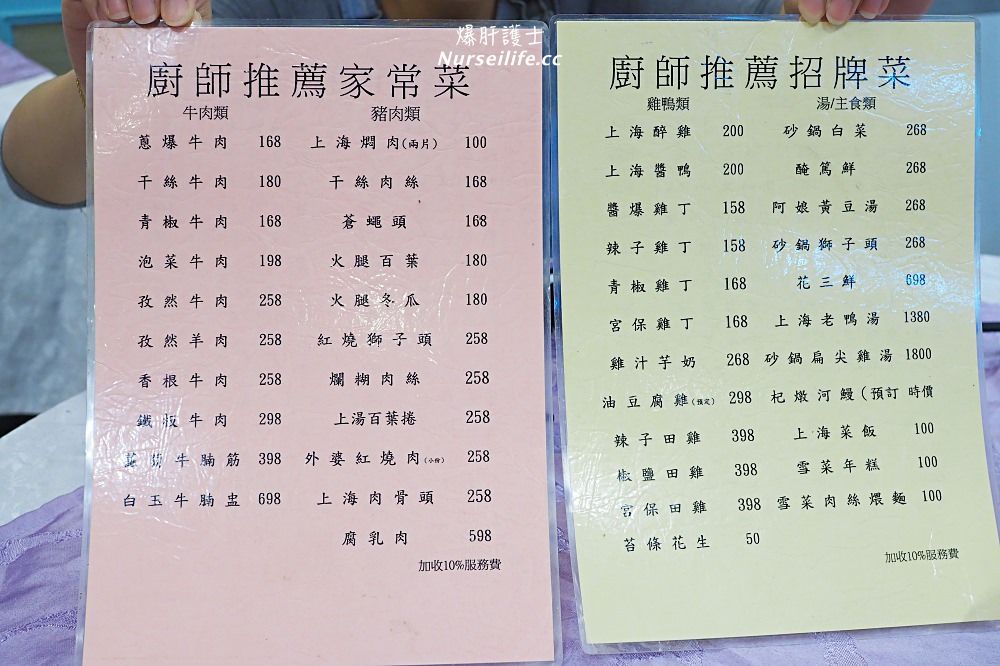 爆肝護士
Nurseilife.cc
廚師推薦家常菜
牛肉類 豬肉類
蔥爆牛肉 168 上海焖肉(兩片) 100
干絲牛肉 180 干絲肉絲 168
青椒牛肉 168 蒼蠅頭 168
泡菜牛肉 198 火腿百葉 180
孜然牛肉 258 火腿冬瓜 180
孜然羊肉 258 紅燒獅子頭 258
香根牛肉 258 爛糊肉絲 258
鐵板牛肉 298 上湯百葉捲 258
牛腩筋 398 外婆紅燒肉(小份) 258
白玉牛腩盅 698 上海肉骨頭 258
腐乳肉 598
加收10%服務費
廚師推薦招牌菜
雞鴨類 湯/主食類
上海醉雞 200 砂鍋白菜 268
上海醬鴨 200 醃篤鮮 268
醬爆雞丁 158 阿娘黃豆湯 268
辣子雞丁 158 砂鍋獅子頭 268
青椒雞丁 168 花三鮮 698
宮保雞丁 168 上海老鴨湯 1380
雞汁芋奶 268 砂鍋扁尖雞湯 1800
油豆腐雞(預定) 298 杞燉河鰻(預訂 時價
辣子田雞 398 上海菜飯 100
椒鹽田雞 398 雪菜年糕 100
宮保田雞 398 雪菜肉絲煨麵 100
苔條花生 50
加收10%服務費